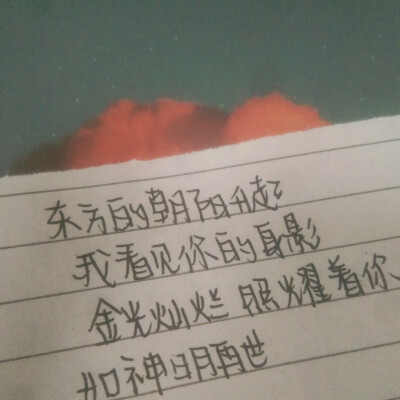 东方的朝阳升起
我看见你的身影
金光灿烂 照耀着你、
如神明再世